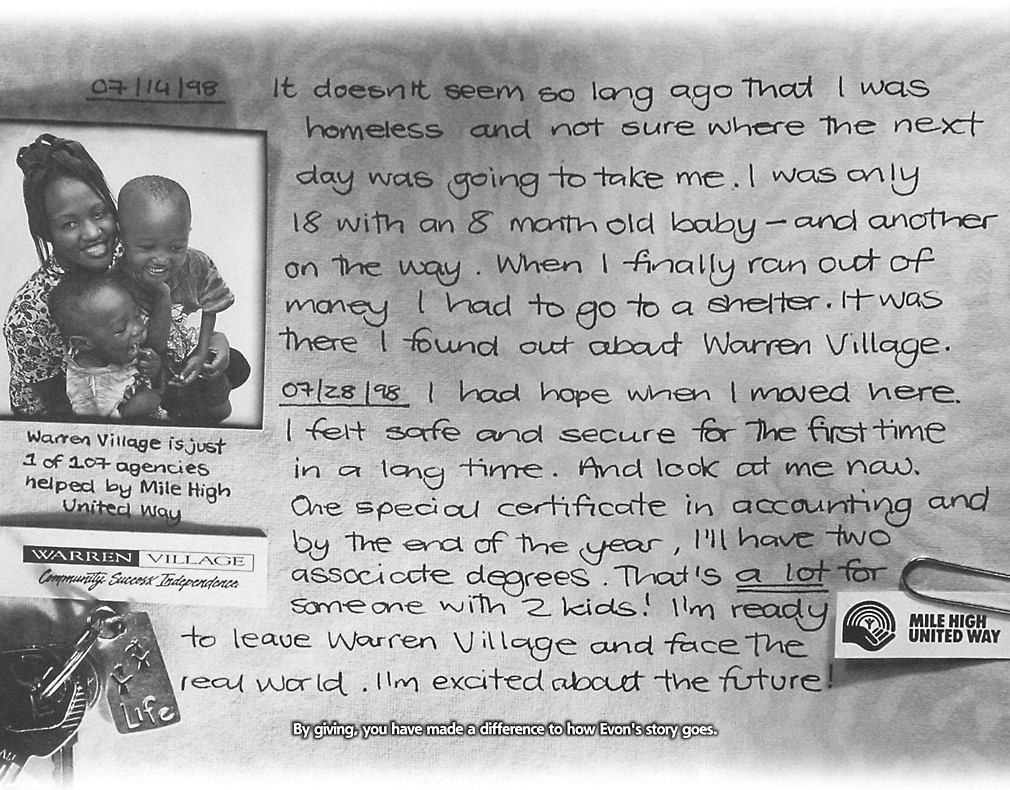 07/14/98 It doesn't seem so long ago that I was
homeless and not sure where the next
day was going to take me. I was only
18 with an 8 month old baby – and another
on the way. When I finally ran out of
money I had to go to a shelter. It was
there I found out about Warren Village.
07/28/98 I had hope when I moved here.
I felt safe and secure for the first time
in a long time. And look at me now.
One special certificate in accounting and
by the end of the year, I'll have two
associate degrees. That's a lot for
someone with 2 kids! I'm ready
to leave Warren Village and face the
real world. I'm excited about the future!
Warren Village is just
1 of 107 agencies
helped by Mile High
United Way
WARREN VILLAGE
Community. Success. Independence.
Life
MILE HIGH
UNITED WAY
By giving, you have made a difference to how Evon's story goes.